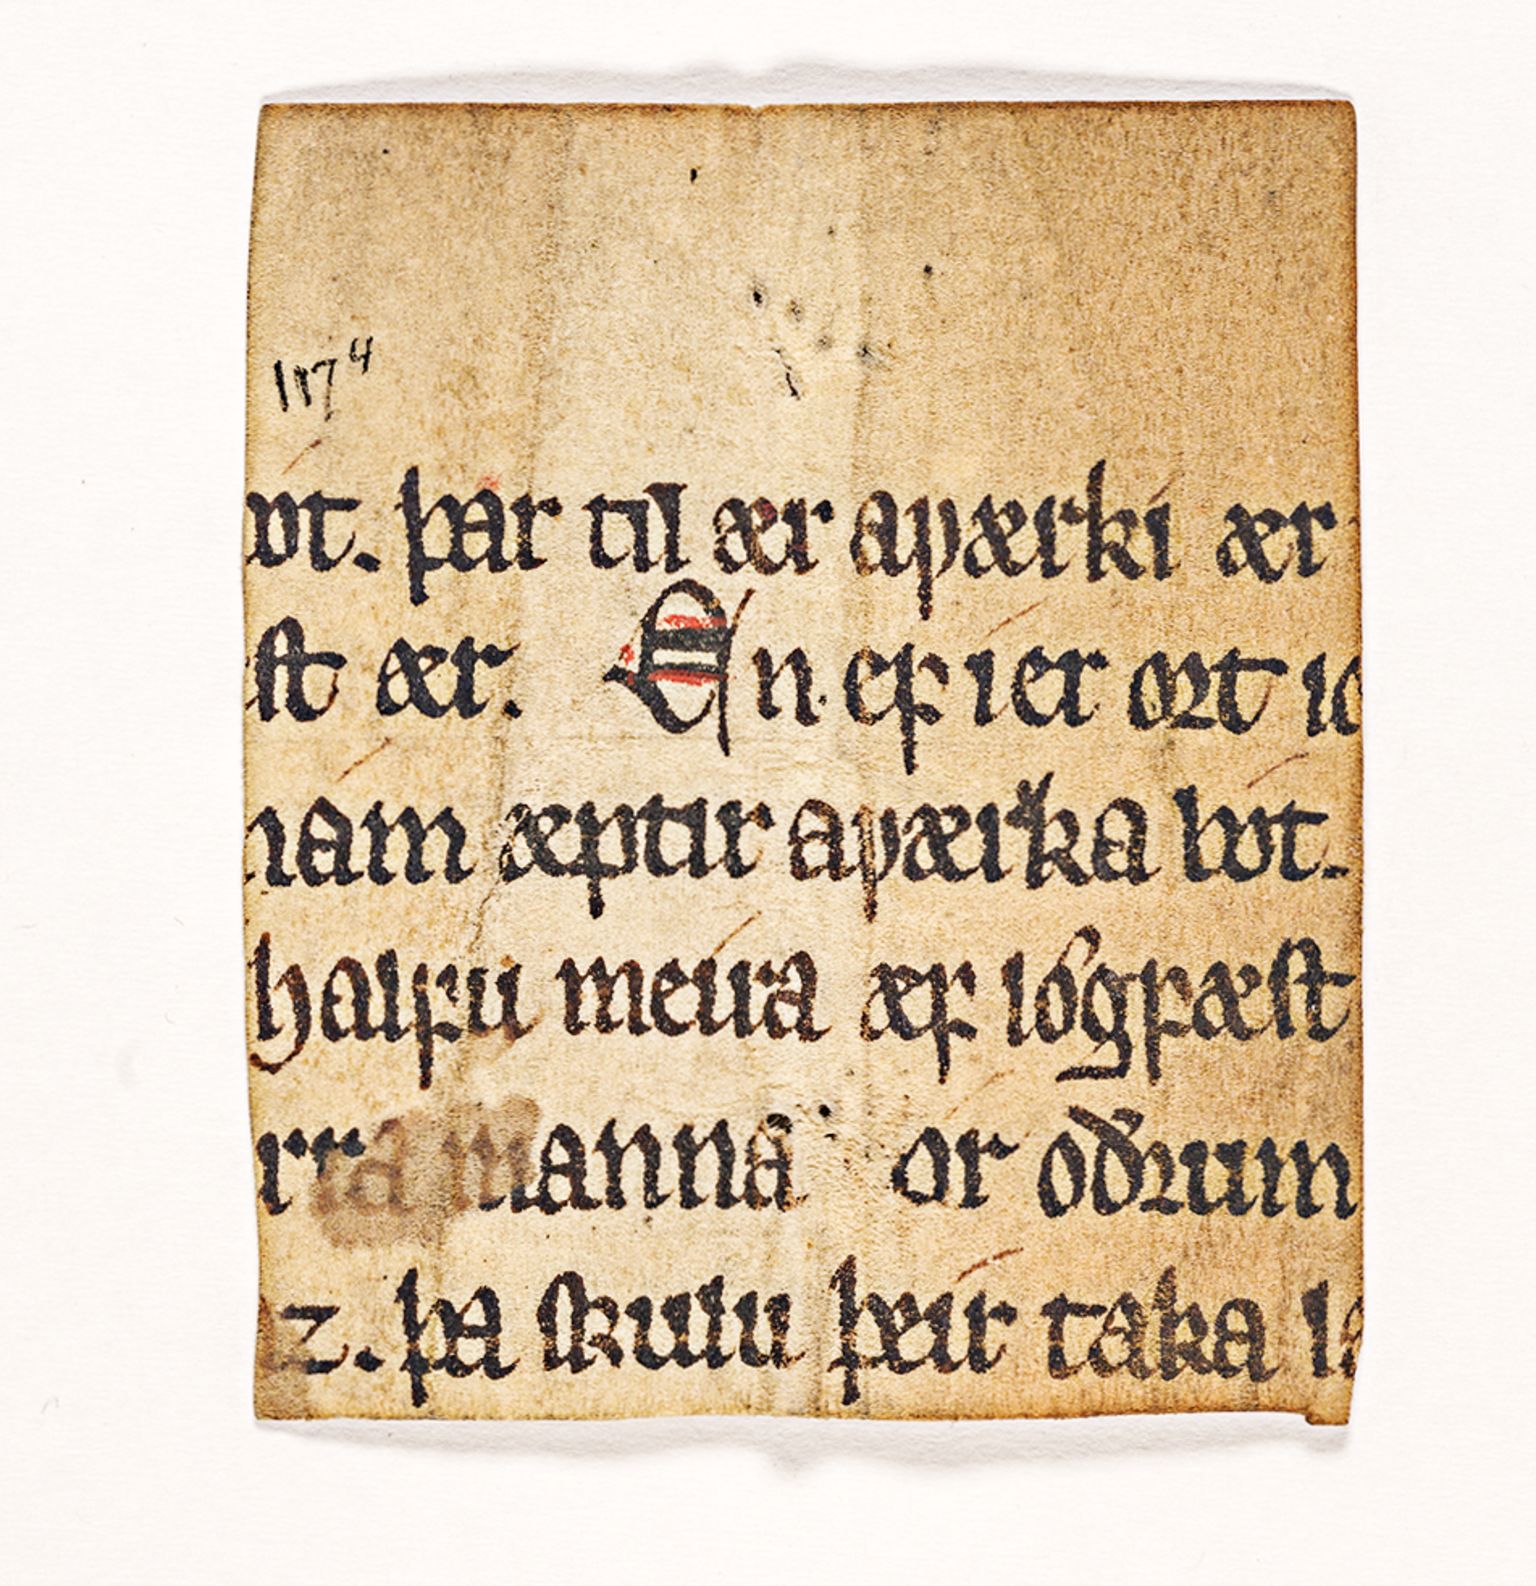 117⁴
bot. þar til ær aꝩærki ær
ſt ær. En eꝼ ier ort ic
nam æptir aꝩærka bot.
halꝼu meira æꝼ lógꝼæſt
rra manna or oðrum
z. þa ſkulu þeir taka la